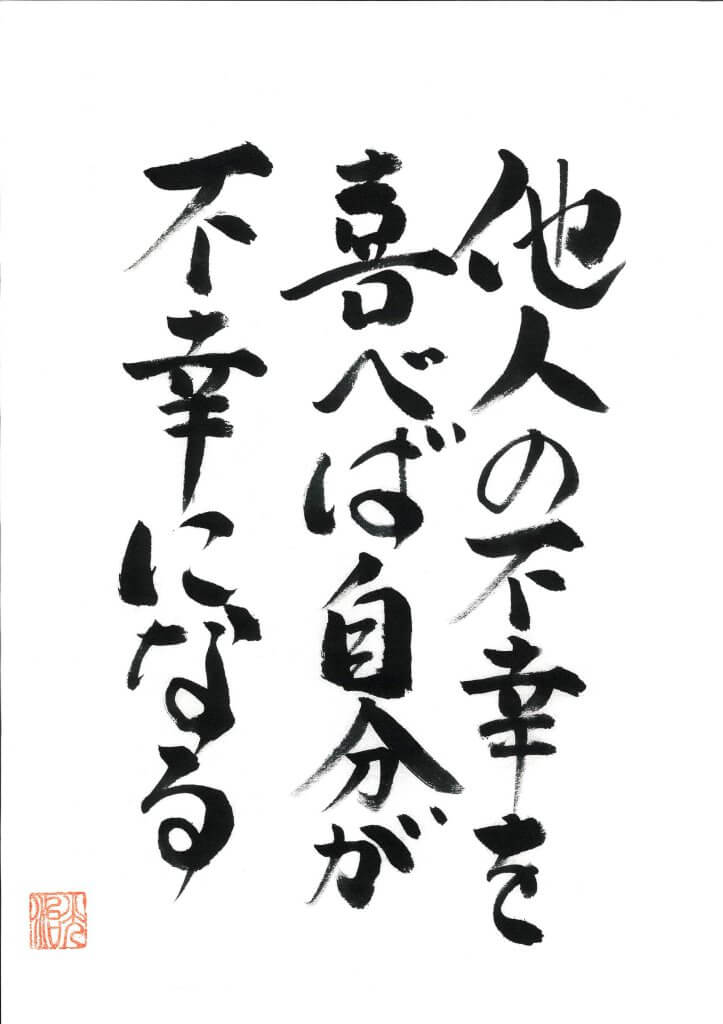 他人の不幸を
喜べば自分が
不幸になる